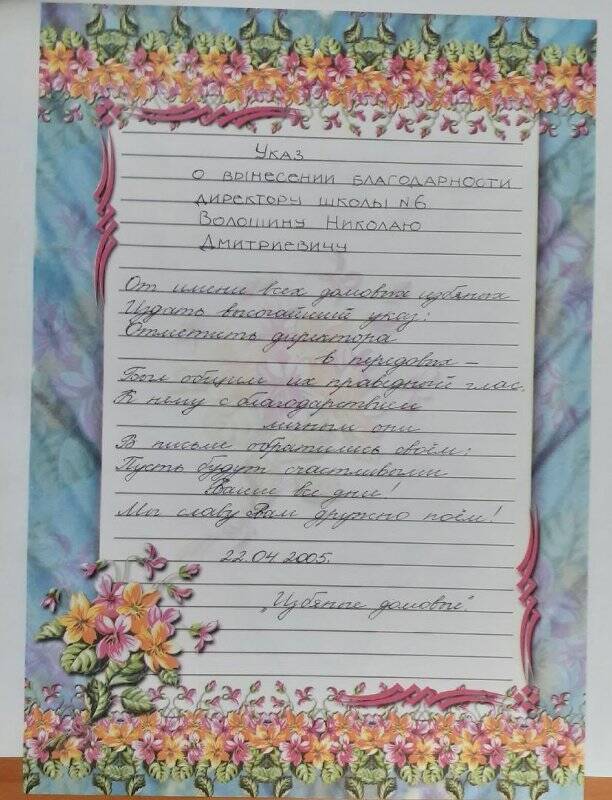 Указ
о вынесении благодарности
директору школы №6
Волошину Николаю
Дмитриевичу
От имени всех домовых избяных
Издать высочайший указ:
Отметить директора
в передовых –
Был общим их праведной глас.
К нему с благодарствием
личным они
В письме обратились своём:
Пусть будут счастливыми
Ваши все дни!
Мы славу Вам дружно поём!
22.04 2005.
„Избяные домовые".